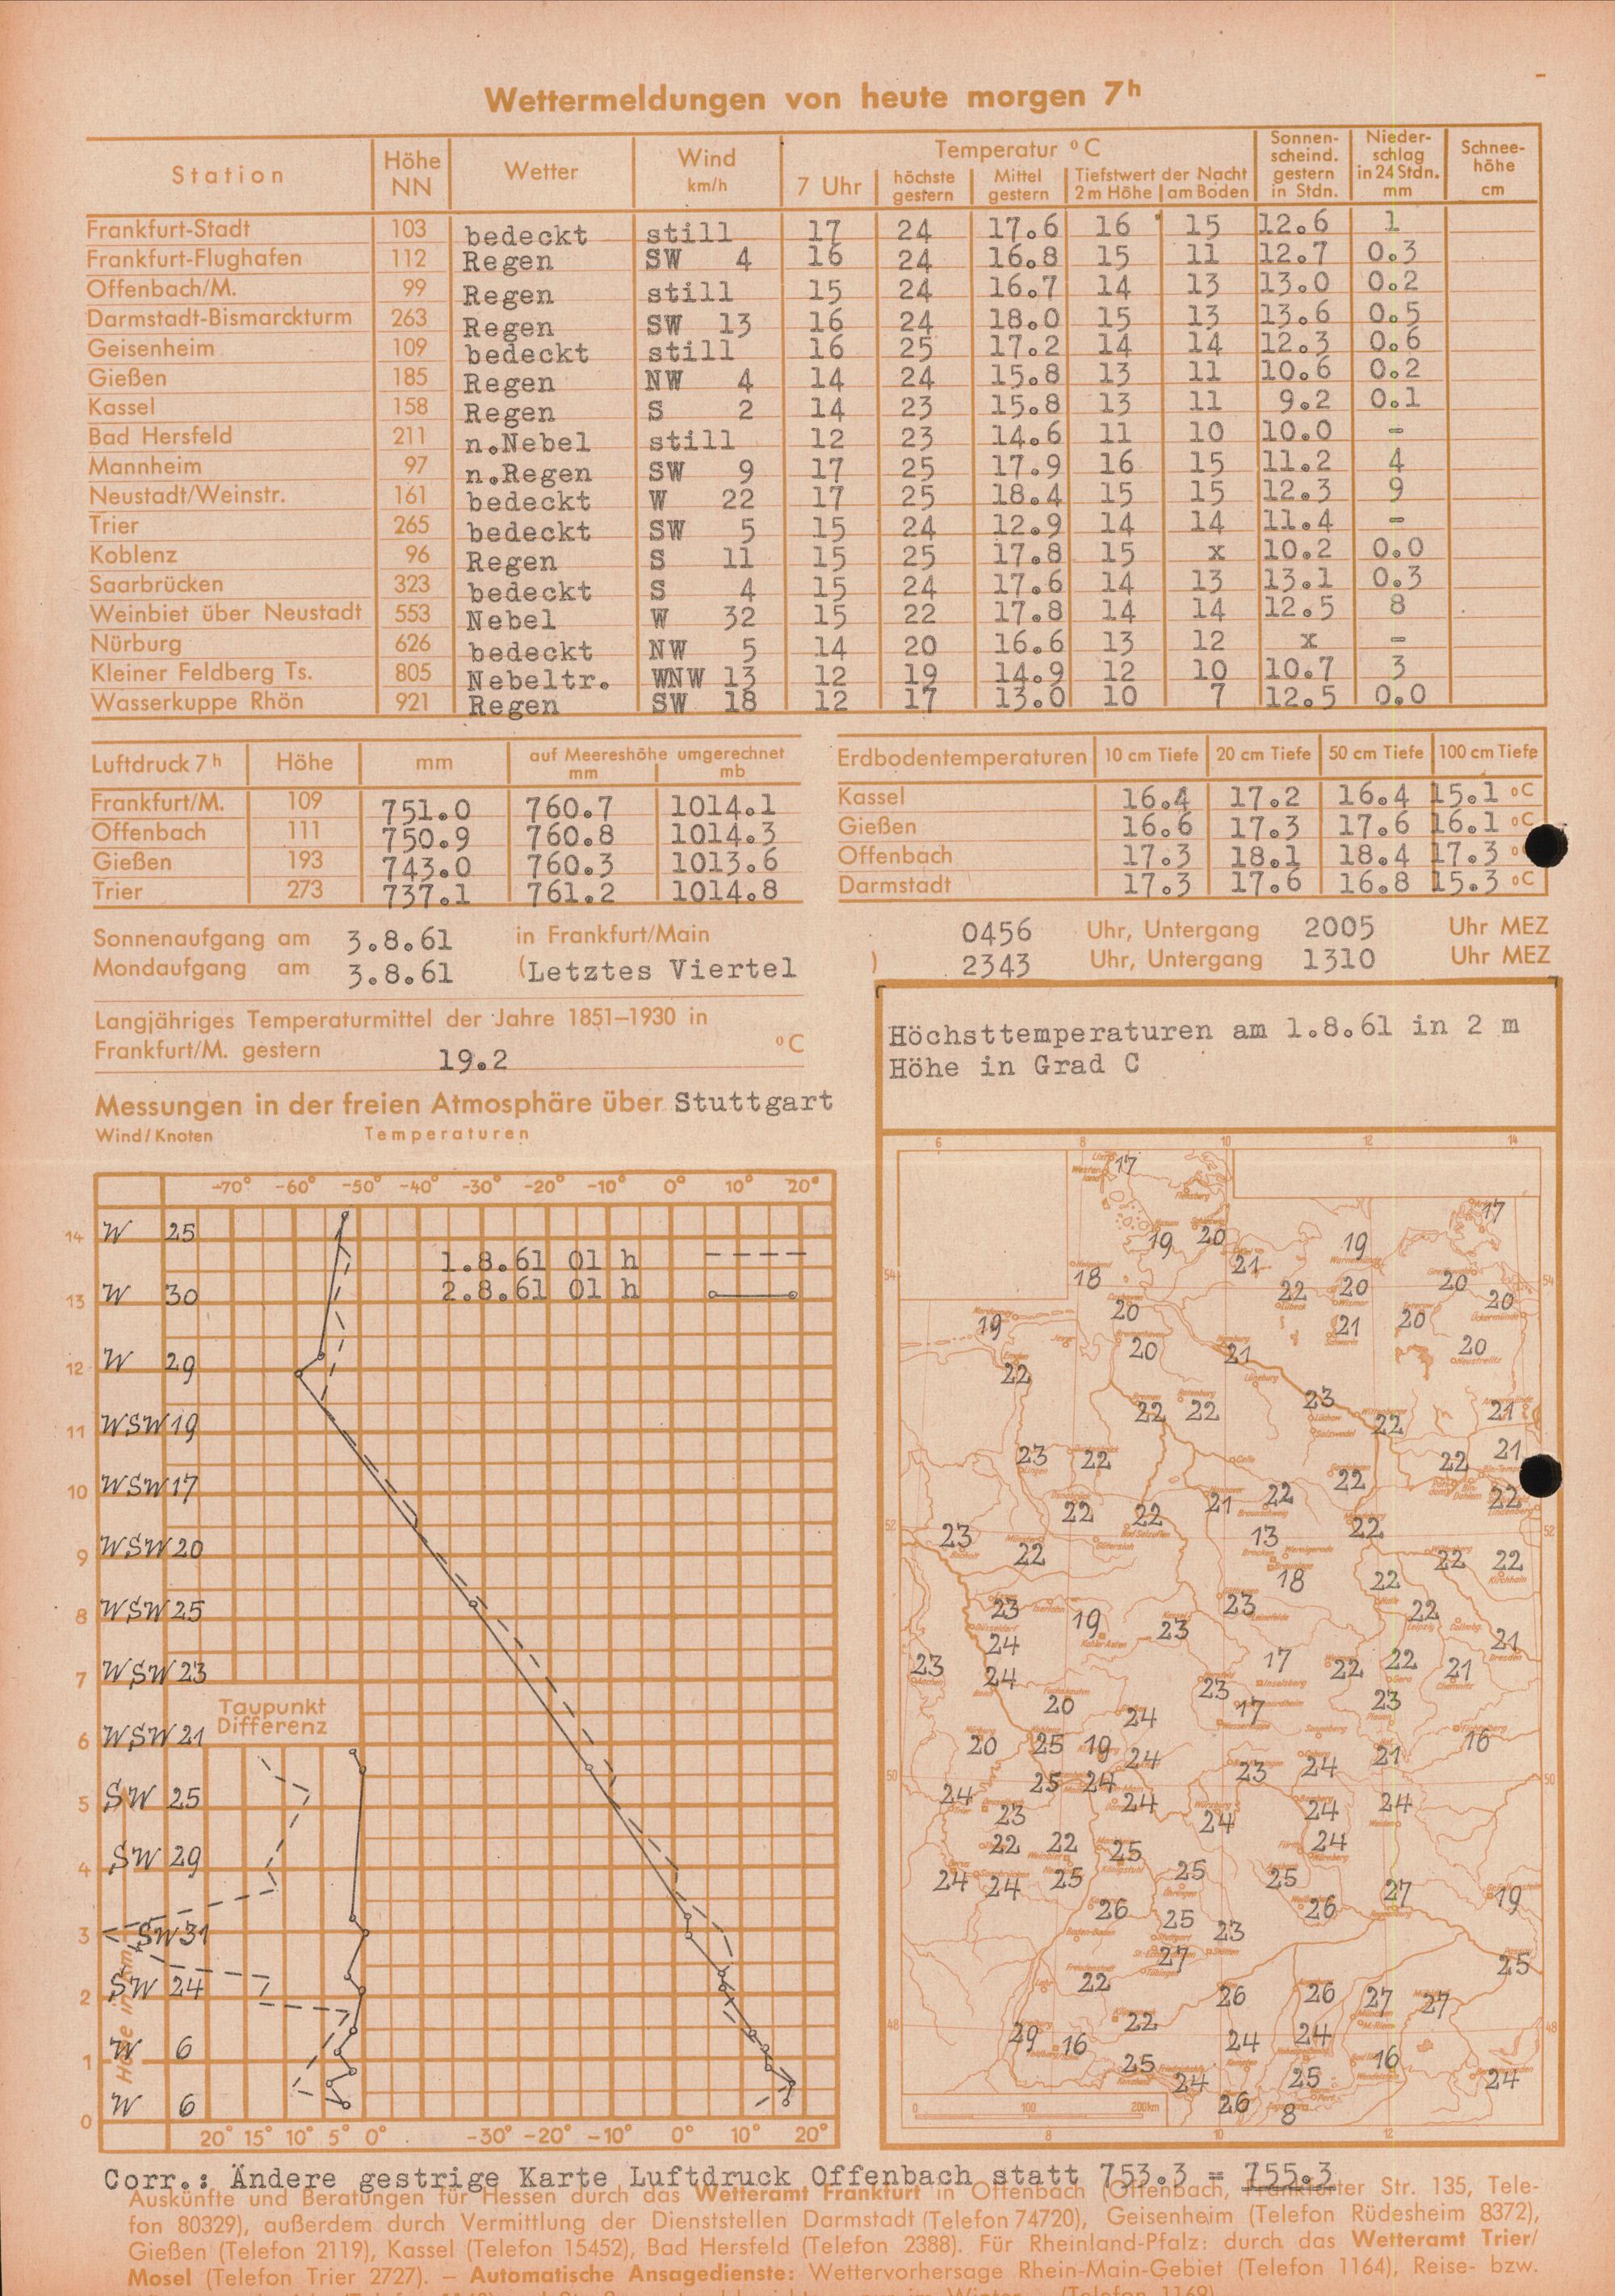 Wettermeldungen von heute morgen 7h
Station Höhe NN Wetter Wind km/h Temperatur °C Sonnenscheind. gestern in Stdn. Niederschlag in 24 Stdn. mm Schneehöhe cm
7 Uhr höchste gestern Mittel gestern Tiefstwert der Nacht 2 m Höhe am Boden
Frankfurt-Stadt 103 bedeckt still 17 24 17.6 16 15 12.6 1
Frankfurt-Flughafen 112 Regen SW 4 16 24 16.8 15 11 12.7 0.3
Offenbach/M. 99 Regen still 15 24 16.7 14 13 13.0 0.2
Darmstadt-Bismarckturm 263 Regen SW 13 16 24 18.0 15 13 13.6 0.5
Geisenheim 109 bedeckt still 16 25 17.2 14 14 12.3 0.6
Gießen 185 Regen NW 4 14 24 15.8 13 11 10.6 0.2
Kassel 158 Regen S 2 14 23 15.8 13 11 9.2 0.1
Bad Hersfeld 211 n.Nebel still 12 23 14.6 11 10 10.0 -
Mannheim 97 n.Regen SW 9 17 25 17.9 16 15 11.2 4
Neustadt/Weinstr. 161 bedeckt W 22 17 25 18.4 15 15 12.3 9
Trier 265 bedeckt SW 5 15 24 12.9 14 14 11.4 -
Koblenz 96 Regen S 11 15 25 17.8 15 x 10.2 0.0
Saarbrücken 323 bedeckt S 4 15 24 17.6 14 13 13.1 0.3
Weinbiet über Neustadt 553 Nebel W 32 15 22 17.8 14 14 12.5 8
Nürburg 626 bedeckt NW 5 14 20 16.6 13 12 x -
Kleiner Feldberg Ts. 805 Nebeltr. WNW 13 12 19 14.9 12 10 10.7 3
Wasserkuppe Rhön 921 Regen SW 18 12 17 13.0 10 7 12.5 0.0
Luftdruck 7h Höhe mm auf Meereshöhe umgerechnet mm mb
Frankfurt/M. 109 751.0 760.7 1014.1
Offenbach 111 750.9 760.8 1014.3
Gießen 193 743.0 760.3 1013.6
Trier 273 737.1 761.2 1014.8
Erdbodentemperaturen 10 cm Tiefe 20 cm Tiefe 50 cm Tiefe 100 cm Tiefe
Kassel 16.4 17.2 16.4 15.1 °C
Gießen 16.6 17.3 17.6 16.1 °C
Offenbach 17.3 18.1 18.4 17.3 °
Darmstadt 17.3 17.6 16.8 15.3 °C
Sonnenaufgang am 3.8.61 in Frankfurt/Main 0456 Uhr, Untergang 2005 Uhr MEZ
Mondaufgang am 3.8.61 (Letztes Viertel ) 2343 Uhr, Untergang 1310 Uhr MEZ
Langjähriges Temperaturmittel der Jahre 1851–1930 in
Frankfurt/M. gestern 19.2 °C
Messungen in der freien Atmosphäre über Stuttgart
Wind/Knoten Temperaturen
-70° -60° -50° -40° -30° -20° -10° 0° 10° 20°
14 W 25
1.8.61 01 h
2.8.61 01 h
13 W 30
12 W 29
11 WSW 19
10 WSW 17
9 WSW 20
8 WSW 25
7 WSW 23
Taupunkt
Differenz
6 WSW 21
5 SW 25
4 SW 29
3 SW 31
2 SW 24
1 W 6
0 W 6
Höhe in km
20° 15° 10° 5° 0° -30° -20° -10° 0° 10° 20°
Höchsttemperaturen am 1.8.61 in 2 m
Höhe in Grad C
6 8 10 12 14
17
17
19 20 19
21
18 22 20 20
54 54
20 20
19 21 20
20 21 20
22
23
22 22 22 21
23 22 22 21
22
22 22 21 22 22
52 52
23 22 13 22
22 22
18 22
23 23 22
19 23
24 21
23 24 17 22 22 21
23
20 24 17 23
20 25 19 24 21 16
23 24
50 50
24 25 24
23 24 24 24 24
22 22 25 24
24 24 25 25 25
27 19
26 26
25 23
27 25
22
26 26 27 27
48 48
29 16 22 24 24
25 16
24 25 24
26 8
0 100 200km
8 10 12
Corr.: Ändere gestrige Karte Luftdruck Offenbach statt 753.3 = 755.3
Auskünfte und Beratungen für Hessen durch das Wetteramt Frankfurt in Offenbach (Offenbach, Frankfurter Str. 135, Tele-
fon 80329), außerdem durch Vermittlung der Dienststellen Darmstadt (Telefon 74720), Geisenheim (Telefon Rüdesheim 8372),
Gießen (Telefon 2119), Kassel (Telefon 15452), Bad Hersfeld (Telefon 2388). Für Rheinland-Pfalz: durch das Wetteramt Trier/
Mosel (Telefon Trier 2727). – Automatische Ansagedienste: Wettervorhersage Rhein-Main-Gebiet (Telefon 1164), Reise- bzw.